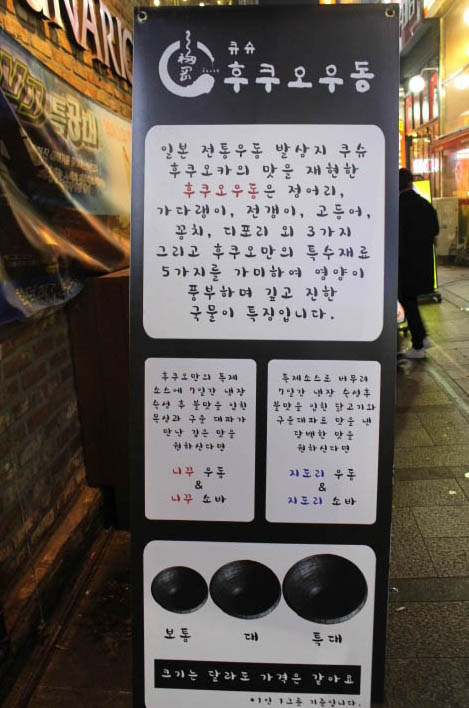 NARIC
특공대
큐슈
후쿠오우동
일본 전통우동 발상지 쿠슈
후쿠오카의 맛을 재현한
후쿠오우동은 정어리,
가다랭이, 전갱이, 고등어,
꽁치, 디포리 외 3가지
그리고 후쿠오만의 특수재료
5가지를 가미하여 영양이
풍부하며 깊고 진한
국물이 특징입니다.
후쿠오만의 특제
소스에 7일간 냉장
숙성 후 불맛을 입힌
우삼과 구운 대파가
만난 깊은 맛을
원하신다면
니꾸 우동
&
니꾸 소바
특제소스로 버무려
7일간 냉장 숙성후
불맛을 입힌 닭고기와
구운대파로 맛을 낸
담백한 맛을
원하신다면
지도리 우동
&
지도리 소바
보통 대 특대
크기는 달라도 가격은 같아요
*1인 1그릇 기준입니다.